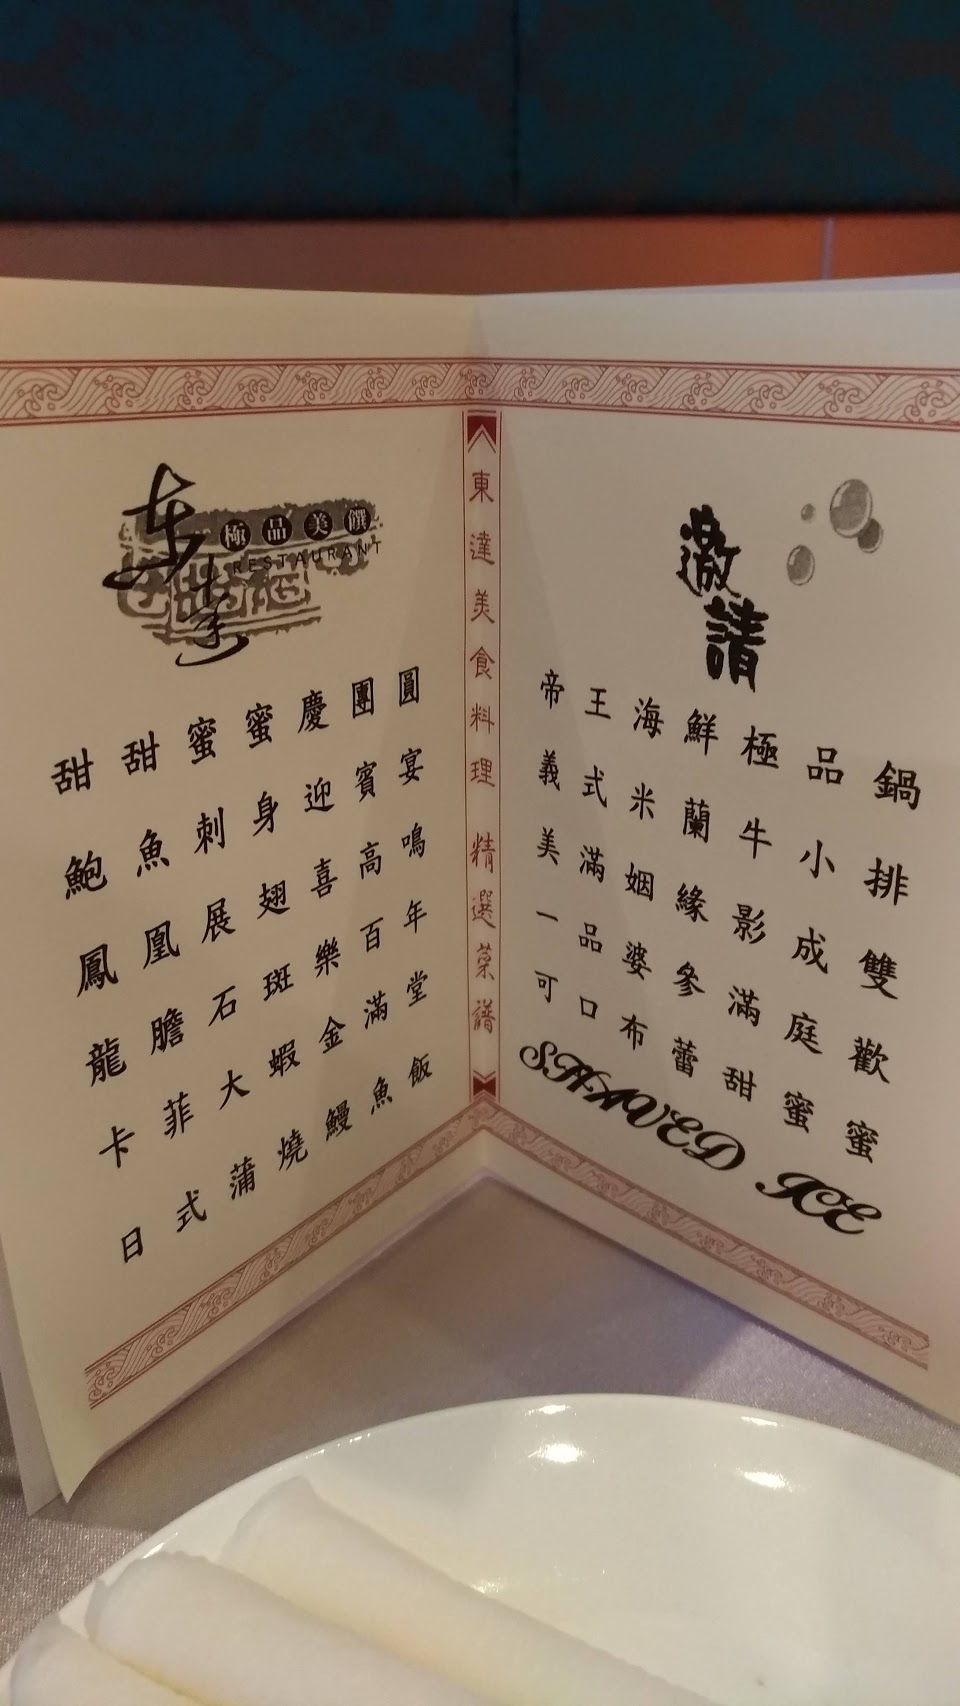 極品美饌
RESTAURANT
甜甜蜜蜜慶團圓
鮑魚刺身迎賓宴
鳳凰展翅喜高鳴
龍膽石斑樂百年
卡菲大蝦金滿堂
日式蒲燒鰻魚飯
東達美食料理 精選菜譜
邀請
帝王海鮮極品鍋
義式米蘭牛小排
美滿姻緣影成雙
一品婆參滿庭歡
可口布蕾甜蜜蜜
SHAVED ICE